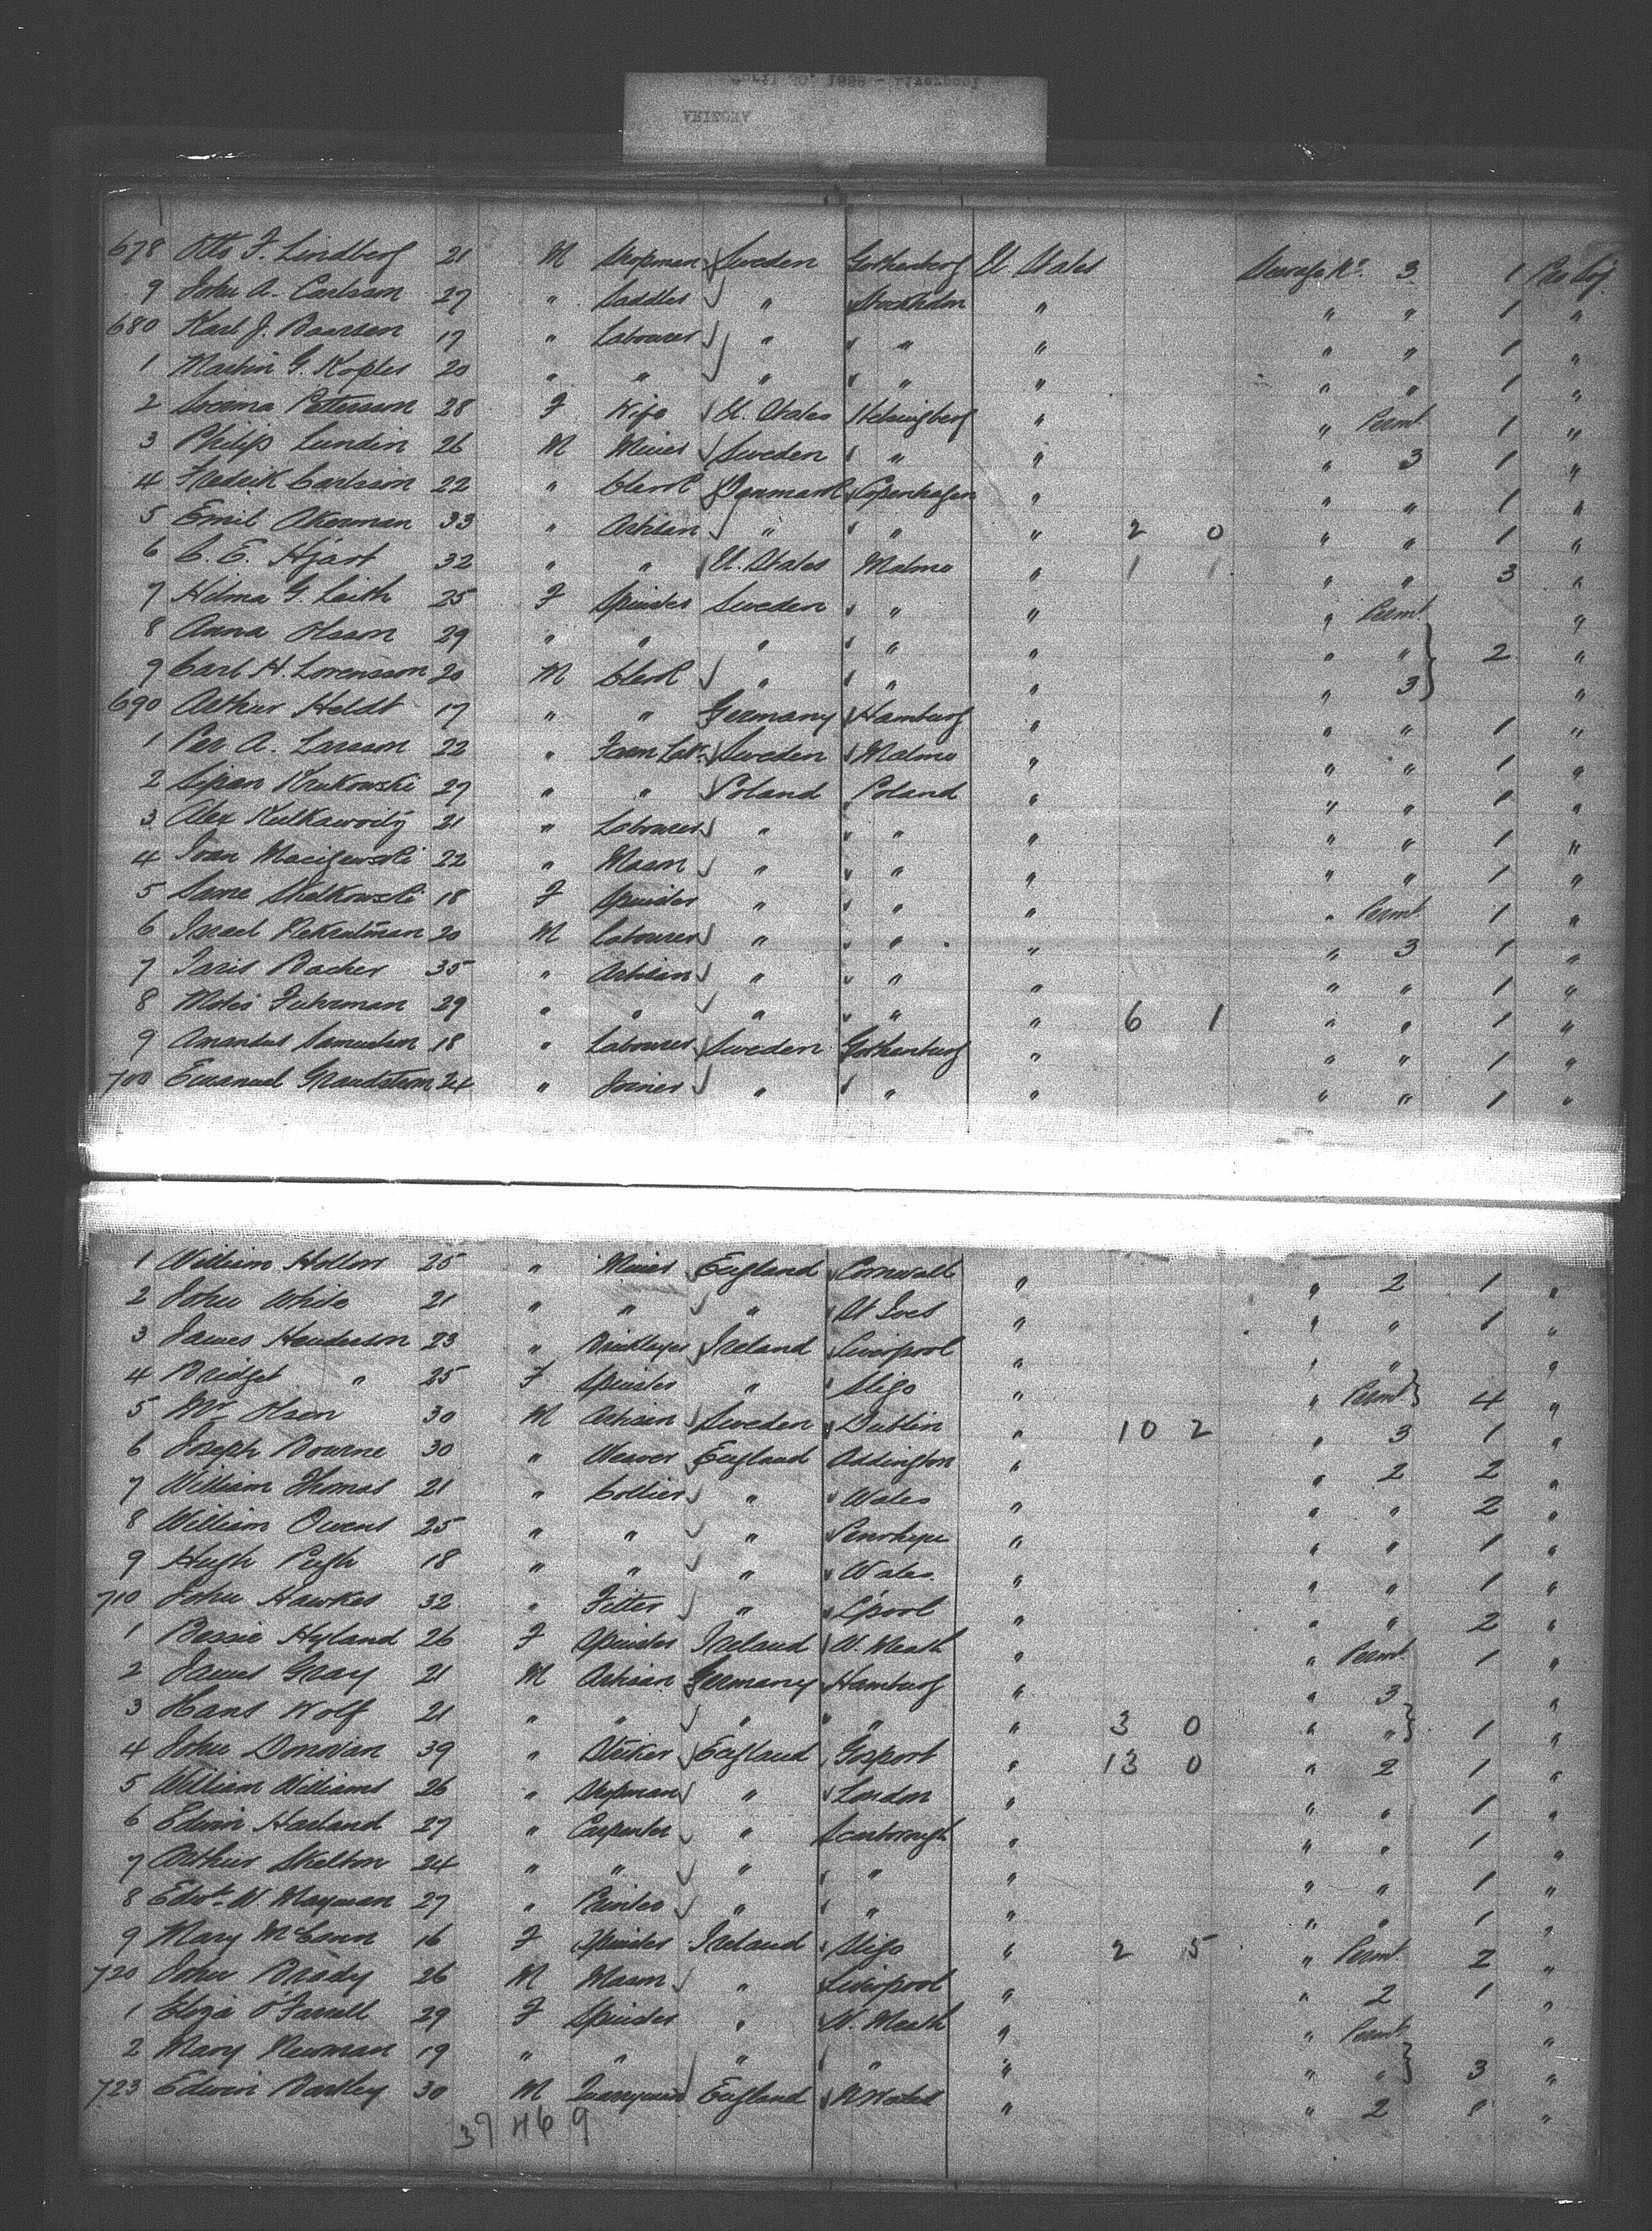 678 Otto F. Lindberg 21 M Shopman Sweden Gothenberg U. States Steerage No. 3 1
9 John A. Carlsson 27 " Saddler " Stockholm " " " 1 "
680 Karl J. 17 " Labourer " " " " " 1 "
1 Martin G. Kopler 20 " " " " " " " 1 "
2 Petterson 28 F Wife U. States Helsingberg " " Permt. 1 "
3 Philip Lundin 26 M Miner Sweden " " " 3 1 "
4 Fredrik Carlsson 22 " Clerk Denmark Copenhagen " " " 1 "
5 Emil Akerman 33 " Artisan " " " 2 0 " " 1 "
6 C. E. Hjart 32 " " U. States Malmo " 1 1 " " 3 "
7 Hilma G. Leith 25 F Spinster Sweden " " " Permt. "
8 Anna Olsson 29 " " " " " " " 2 "
9 Carl H. Lorensson 20 M Clerk " " " " 3 "
690 Arthur Heldt 17 " " Germany Hamburg " " " 1 "
1 Per A. Larsson 22 " Farm Lab. Sweden Malmo " " " 1 "
2 Krukowski 27 " " Poland Poland " " " 1 "
3 Alex 21 " Labourer " " " " " 1 "
4 Ivan 22 " Mason " " " " " 1 "
5 Skalkowski 18 F Spinster " " " " Permt. 1 "
6 Israel 20 M Labourer " " " " 3 1 "
7 Bacher 35 " Artisan " " " " " 1 "
8 Fuhrman 29 " " " " " 6 1 " " 1 "
9 Samuelson 18 " Labourer Sweden Gothenburg " " " 1 "
700 Emanuel 24 " Joiner " " " " " 1 "
1 William Hollow 25 " Miner England Cornwall " " 2 1 "
2 John White 21 " " " St Ives " " " 1 "
3 James Henderson 23 " Bricklayer Ireland Liverpool " " " "
4 Bridget " 25 F Spinster " Sligo " " Permt. 4 "
5 Mr. Olsen 30 M Artisan Sweden Dublin " 10 2 " 3 1 "
6 Joseph Bourne 30 " Weaver England Addington " " 2 2 "
7 William Thomas 21 " Collier " Wales " " " 2 "
8 William Owens 25 " " " " " " 1 "
9 Hugh Pugh 18 " " " Wales " " " 1 "
710 John Hawkes 32 " Fitter " L'pool " " " 2 "
1 Bessie Hyland 26 F Spinster Ireland W. Meath " " Permt. 1 "
2 James Gray 21 M Artisan Germany Hamburg " " 3 "
3 Hans Wolf 21 " " " " " 3 0 " " 1 "
4 John Donovan 39 " Stoker England Gosport " 13 0 " 2 1 "
5 William Williams 26 " Shopman " London " " " 1 "
6 Edwin Harland 27 " Carpenter " Scarborough " " " 1 "
7 Arthur Skelton 24 " " " " " " " 1 "
8 Edwd. W. Mayman 27 " Printer " " " " " 1 "
9 Mary McCann 16 F Spinster Ireland Sligo " 2 5 " Permt. 2 "
720 John Brady 26 M Mason " Liverpool " " 2 1 "
1 Eliza O'Farrell 29 F Spinster " W. Meath " " Permt. "
2 Mary Newman 19 " " " " " " " 3 "
723 Edwin Bartley 30 M Quarryman England N Wales " " 2 1 "